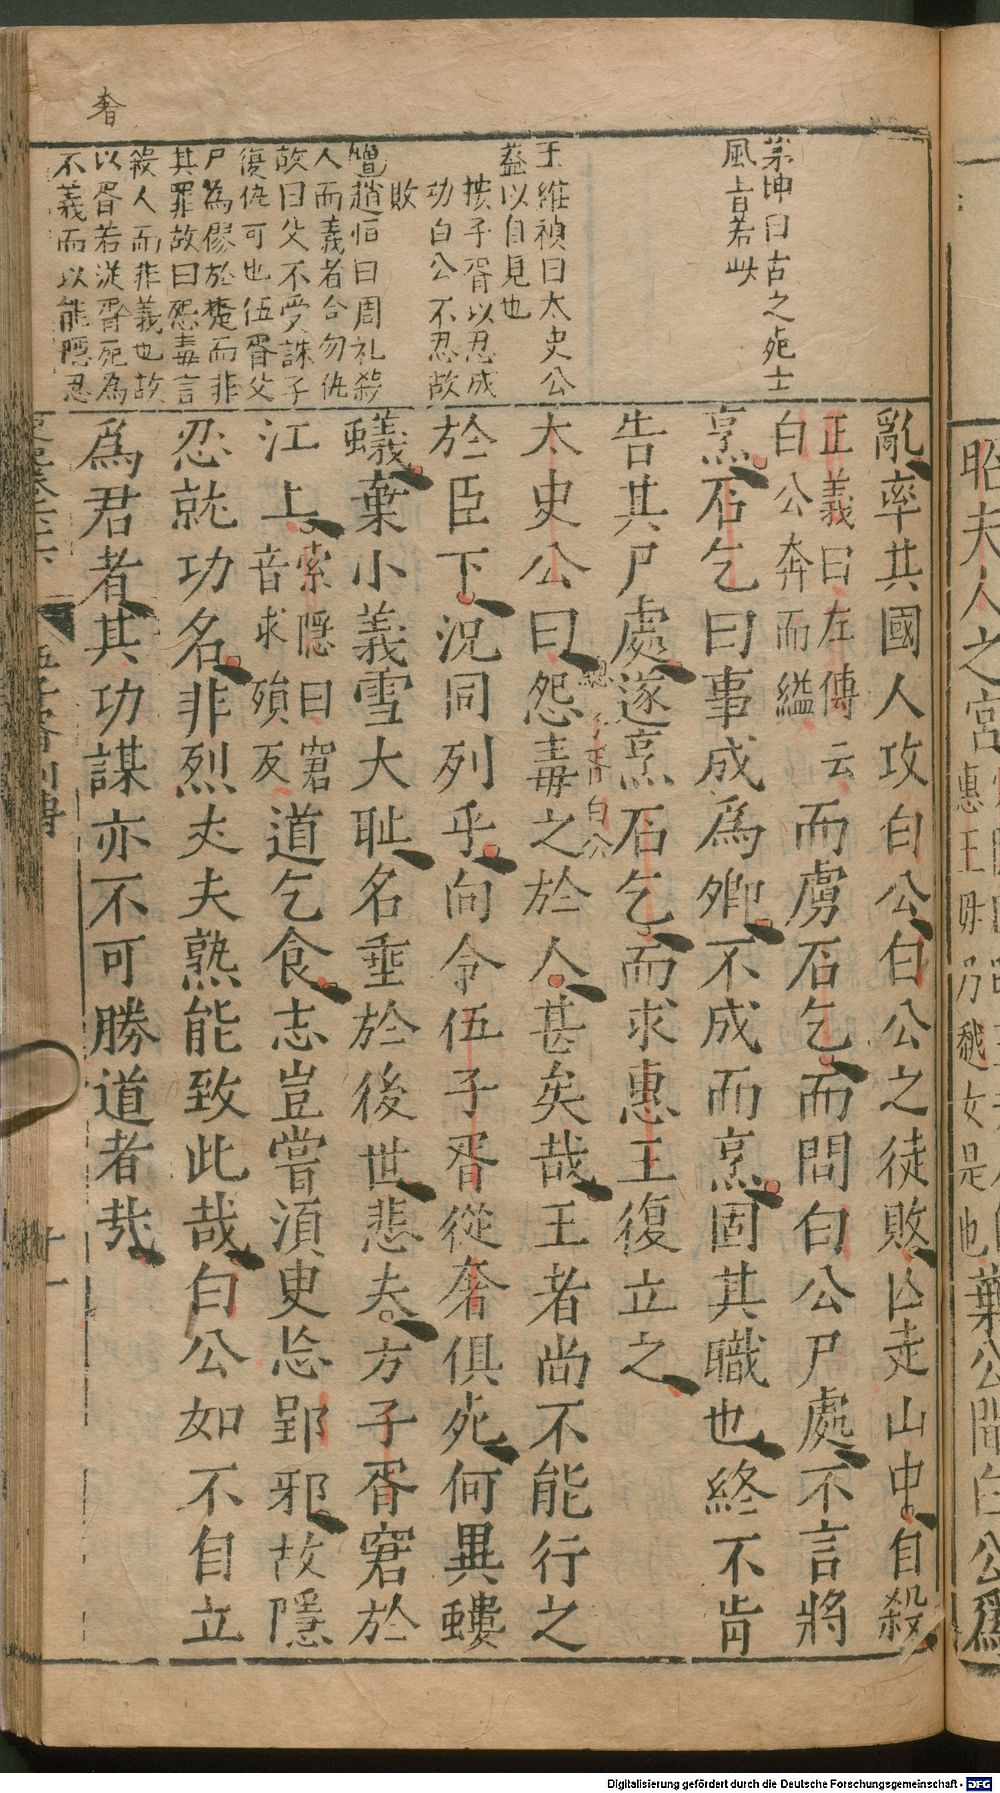 昭夫人之宮
惠王母乃越女是也
葉公聞白公爲
茅坤曰古之死士
風旨若此
王維禎曰太史公
蓋以自見也
按子胥以忍成
功白公不忍故
敗
趙恒曰周礼殺
人而義者令勿仇
故曰父不受誅子
復仇可也伍胥父
尸為僇於楚而非
其罪故曰怨毒言
殺人而非義也故
以胥若從奢死為
不義而以能隱忍
奢
亂率其國人攻白公白公之徒敗亡走山中自殺
正義曰左傳云
白公奔而縊
而虜石乞而問白公尸處不言將
烹石乞曰事成爲卿不成而烹固其職也終不肯
告其尸處遂烹石乞而求惠王復立之
太史公曰怨毒之於人甚矣哉王者尚不能行之
於臣下況同列乎向令伍子胥從奢俱死何異螻
蟻棄小義雪大恥名垂於後世悲夫方子胥窘於
江上
索隱曰窘
音求殞反
道乞食志豈嘗須臾忘郢邪故隱
忍就功名非烈丈夫孰能致此哉白公如不自立
爲君者其功謀亦不可勝道者哉
廿一
Digitalisierung gefördert durch die Deutsche Forschungsgemeinschaft - DFG